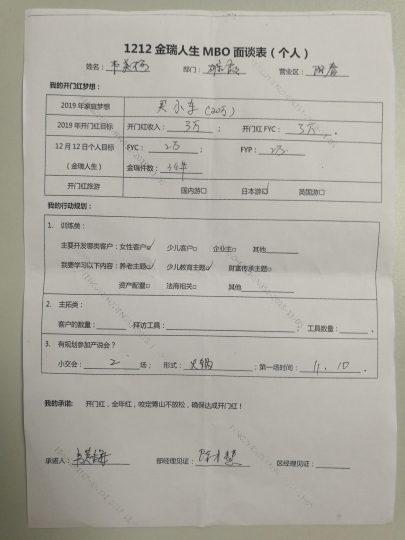 1212金瑞人生MBO面谈表（个人）
姓名： 部门： 营业区：
我的开门红梦想：
2019年家庭梦想 买小车（20万）
2019年开门红目标 开门红收入： 3万 ； 开门红FYC： 3万 。
12月12日个人目标 FYC： 2万 ； FYP： 2万
（金瑞人生） 金瑞件数： 3件
开门红旅游 国内游□ 日本游□√ 英国游□
我的行动规划：
1. 训练类：
主要开发哪类客户：女性客户□√ 少儿客户□ 企业主□ 其他
我要学习以下内容：养老主题□√ 少儿教育主题□√ 财富传承主题□
资产配置□ 法商相关□ 其他
2. 主拓类：
客户的数量： ；拜访工具： ；工具数量： 。
3. 有规划参加产说会？
小交会： 2 场； 形式： 火锅 ；第一场时间： 11.10 。
我的承诺： 开门红，全年红，咬定青山不放松，确保达成开门红！
承诺人： 部经理见证： 区经理见证：